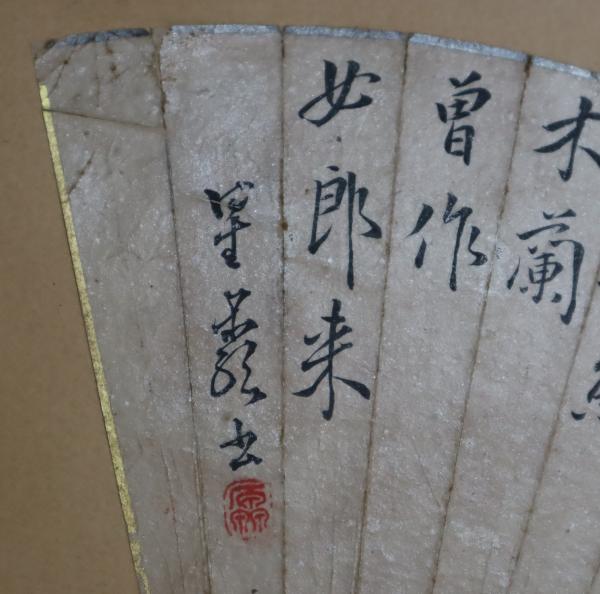 木蘭
曾作
女郎来
星巖書